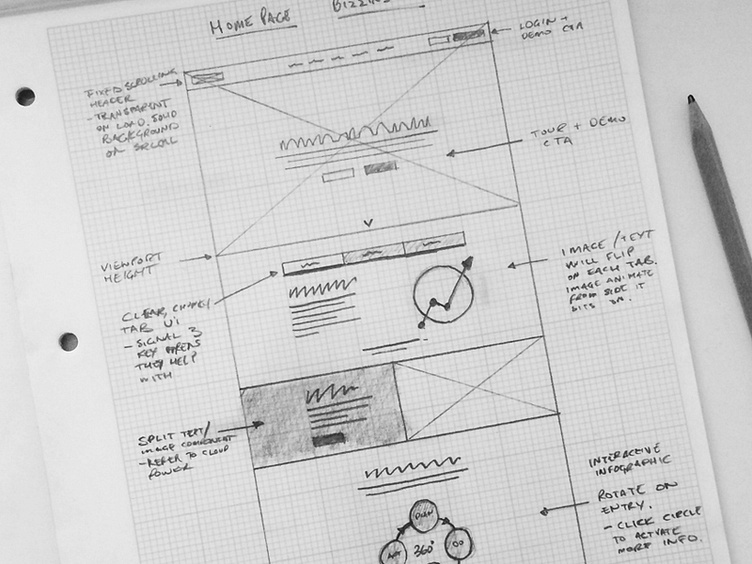 HOME PAGE
LOGIN +
DEMO CTA
FIXED SCROLLING
HEADER
- TRANSPARENT
ON LOAD. SOLID
BACKGROUND
ON SCROLL
TOUR + DEMO
CTA
VIEWPORT
HEIGHT
IMAGE/TEXT
WILL FLIP
ON EACH TAB.
IMAGE ANIMATE
FROM SIDE IT
CLEAR, CHUNKY
TAB UI
- SIGNAL 3
KEY AREAS
THEY HELP
WITH
SPLIT TEXT/
IMAGE COMPONENT
- REFER TO CLOUD
POWER
INTERACTIVE
INFOGRAPHIC
ROTATE ON
ENTRY.
- CLICK CIRCLE
TO ACTIVATE
MORE INFO.
PLAN
ACT
360°
DO